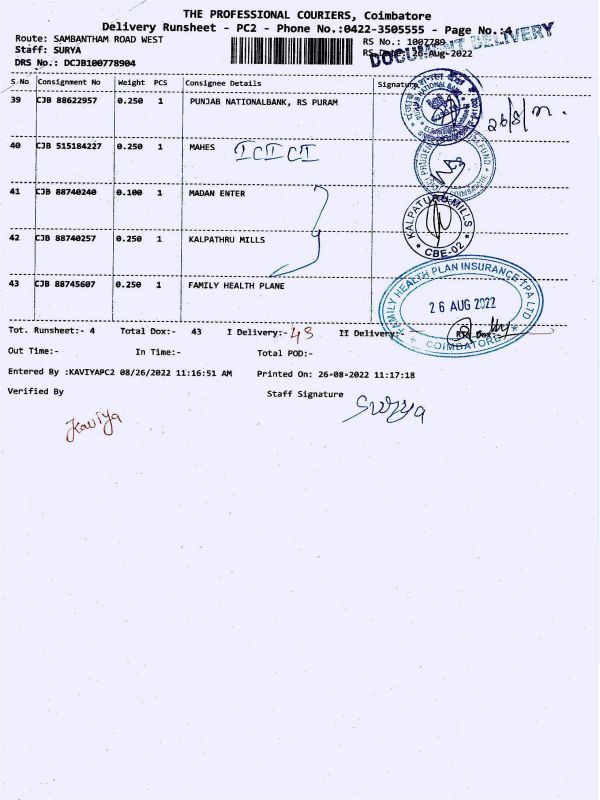 THE PROFESSIONAL COURIERS, Coimbatore
Delivery Runsheet - PC2 - Phone No.:0422-3505555 - Page No.:4
DOCUMENT DELIVERY
Route: SAMBANTHAM ROAD WEST
RS No.: 1007789
Staff: SURYA
RS Date: 26-Aug-2022
DRS No.: DCJB100778904
S No Consignment No Weight PCS Consignee Details Signature
39 CJB 88622957 0.250 1 PUNJAB NATIONALBANK, RS PURAM
26/8/22.
40 CJB 515184227 0.250 1 MAHES ICICI
41 CJB 88740240 0.100 1 MADAN ENTER
KALPATURU MILLS
* CBE-02 *
42 CJB 88740257 0.250 1 KALPATHRU MILLS
43 CJB 88745607 0.250 1 FAMILY HEALTH PLANE
FAMILY HEALTH PLAN INSURANCE TPA LTD
26 AUG 2022
* COIMBATORE *
Tot. Runsheet:- 4 Total Dox:- 43 I Delivery:- 43 II Delivery:-
Out Time:- In Time:- Total POD:-
Entered By :KAVIYAPC2 08/26/2022 11:16:51 AM Printed On: 26-08-2022 11:17:18
Verified By Staff Signature
Kaviya
Surya